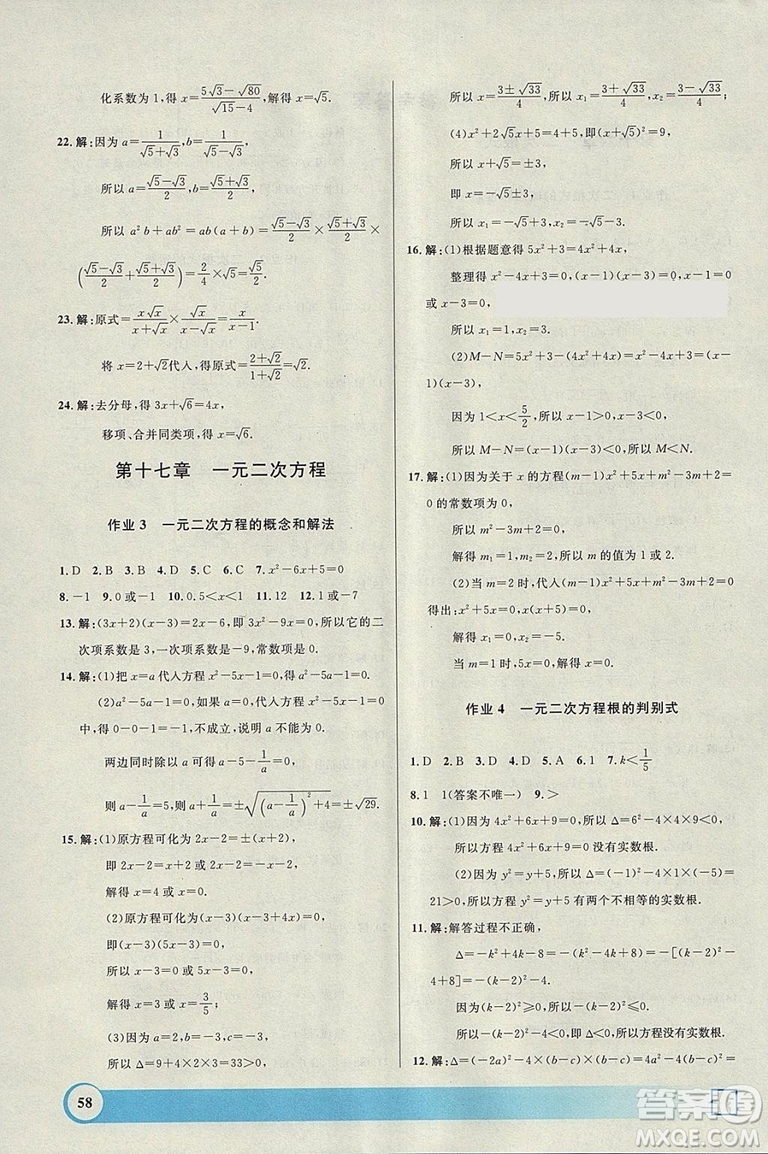 化系数为1,得 x=(5√3-√80)/(√15-4),解得 x=√5.
22.解:因为 a=1/(√5+√3),b=1/(√5-√3),
所以 a=(√5-√3)/2,b=(√5+√3)/2.
所以 a²b+ab²=ab(a+b)=(√5-√3)/2×(√5+√3)/2×
((√5-√3)/2+(√5+√3)/2)=2/4×√5=√5/2.
23.解:原式=x√x/(x+√x)×√x/(x-√x)=x/(x-1).
将 x=2+√2代入,得原式=(2+√2)/(1+√2)=√2.
24.解:去分母,得 3x+√6=4x,
移项、合并同类项,得 x=√6.
第十七章 一元二次方程
作业 3 一元二次方程的概念和解法
1.D 2.B 3.B 4.D 5.C 6.C 7.x²-6x+5=0
8.-1 9.0或-1 10.0.5<x<1 11.12 12.1或-7
13.解:(3x+2)(x-3)=2x-6,即3x²-9x=0,所以它的二
次项系数是3,一次项系数是-9,常数项是0.
14.解:(1)把 x=a 代入方程 x²-5x-1=0,得a²-5a-1=0.
(2)a²-5a-1=0,如果 a=0,那么代入方程,左
中,得 0-0-1=0,不成立,说明 a 不可能为0.
两边同时除以 a,得 a-5-1/a=0,所以 a-1/a=5.
所以 a-1/a=5,则 a+1/a=±√((a-1/a)²+4)=±√29.
15.解:(1)原方程可化为 2x-2=±(x+2),
即 2x-2=x+2或 2x-2=-x-2,
解得 x=4或 x=0.
(2)原方程可化为(x-3)²+4x(x-3)=0,
即(x-3)(x-3+4x)=0,
所以 x-3=0或 5x-3=0,
解得 x=3或 x=3/5;
(3)因为a=2,b=-3,c=-3,
所以 Δ=9+4×2×3=33>0,
所以 x=(3±√33)/4,所以 x₁=(3+√33)/4,x₂=(3-√33)/4.
(4)x²+2√5x+5=4+5,即(x+√5)²=9,
所以 x+√5=±3,
即 x=-√5±3,
所以 x₁=-√5+3,x₂=-√5-3.
16.解:(1)根据题意得 5x²+3=4x²+4x,
整理得 x²-4x+3=0,(x-1)(x-3)=0,x-1=0
或 x-3=0,
所以 x₁=1,x₂=3.
(2)M-N=5x²+3-(4x²+4x)=x²-4x+3=
(x-1)(x-3),
因为 1<x<5/2,所以 x-1>0,x-3<0,
所以 M-N=(x-1)(x-3)<0,所以 M<N.
17.解:(1)因为关于 x 的方程(m-1)x²+5x+m²-3m+2=
0 的常数项为0,
所以 m²-3m+2=0,
解得 m₁=1,m₂=2,所以 m 的值为 1 或 2.
(2)当 m=2时,代入(m-1)x²+5x+m²-3m+2=0
得出:x²+5x=0,
x(x+5)=0,
解得 x₁=0,x₂=-5.
当 m=1时,5x=0,
解得 x=0.
作业 4 一元二次方程根的判别式
1.D 2.B 3.D 4.D 5.A 6.1 7.k<1/5
8.1 1(答案不唯一) 9.>
10.解:(1)因为 4x²+6x+9=0,所以 Δ=6²-4×4×9<0,
所以方程 4x²+6x+9=0没有实数根.
(2)因为 y²+y-5=0,所以 Δ=(-1)²-4×(-5)=
21>0,所以方程 y²+y-5=0有两个不相等的实数根.
11.解:解答过程不正确,
Δ=-k²+4k-8=-(k²-4k+8)=-[(k-2)²-
4+8]=-(k-2)²-4.
因为(k-2)²≥0,所以-(k-2)²≤0,
所以-(k-2)²-4<0,
即 Δ<0,所以方程没有实数根.
12.解:Δ=(-2a)²-4×(b-c)×(b-c)=4a²-4(b-c)²=
58
答案
MXQE.COM